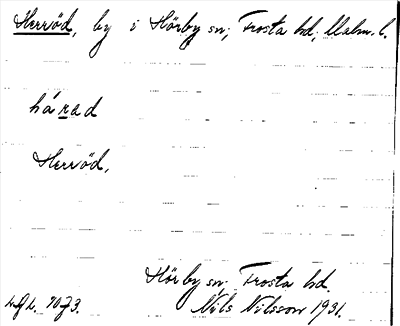 Herröd, by i Hörby sn; Frosta hd; Malm. l.
härad
Herröd,
Hörby sn. Frosta hd.
Nils Nilsson 1931.